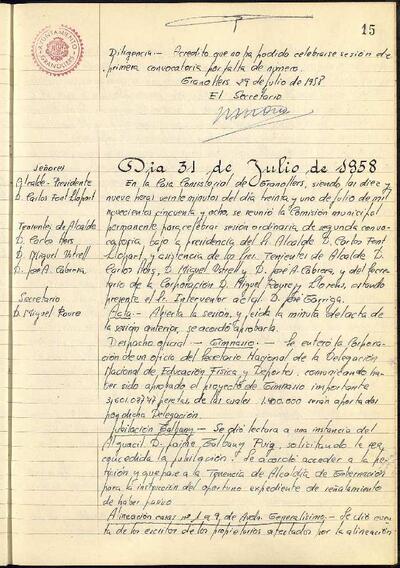 15
AYUNTAMIENTO
GRANOLLERS
Diligencia.- Acredito que no ha podido celebrarse sesión de
primera convocatoria por falta de número.
Granollers 29 de julio de 1958
El Secretario
Día 31 de Julio de 1958
Señores
Alcalde-Presidente
D. Carlos Font Llopart
Tenientes de Alcalde
D. Carlos
D. Miguel
D. José A. Cabrera
Secretario
D. Miguel
En la Casa Consistorial de Granollers, siendo las diez y
nueve horas veinte minutos del día treinta y uno de julio de mil
novecientos cincuenta y ocho, se reunió la Comisión municipal
permanente para celebrar sesión ordinaria de segunda convo-
catoria, bajo la presidencia del Sr. Alcalde D. Carlos Font
Llopart y asistencia de los Sres. Tenientes de Alcalde D.
Carlos D. Miguel y D. José A. Cabrera, y del Secre-
tario de la Corporación D. Miguel y Llorens, estando
presente el Sr. Interventor actal. D. José Garriga.
Acta.- Abierta la sesión, y leída la minuta del acta de
la sesión anterior, se acordó aprobarla.
Despacho oficial.- Gimnasio.- Se enteró la Corpora-
ción de un oficio del Secretario Nacional de la Delegación
Nacional de Educación Física y Deportes, comunicando ha-
ber sido aprobado el proyecto de Gimnasio importante
pesetas, de las cuales 1.400.000 serán aportadas
por dicha Delegación.
Jubilación Galbany.- Se dió lectura a una instancia del
Alguacil D. Jaime Galbany Puig, solicitando le sea
concedida la jubilación y se acordó acceder a la pe-
tición y que pase a la Tenencia de Alcaldía de Gobernación
para la instrucción del oportuno expediente de señalamiento
de haber pasivo
Alineación casas nº 1 a 9 de Avda. Generalísimo.- Se dió cuen-
ta de los escritos de los propietarios afectados por la alineación